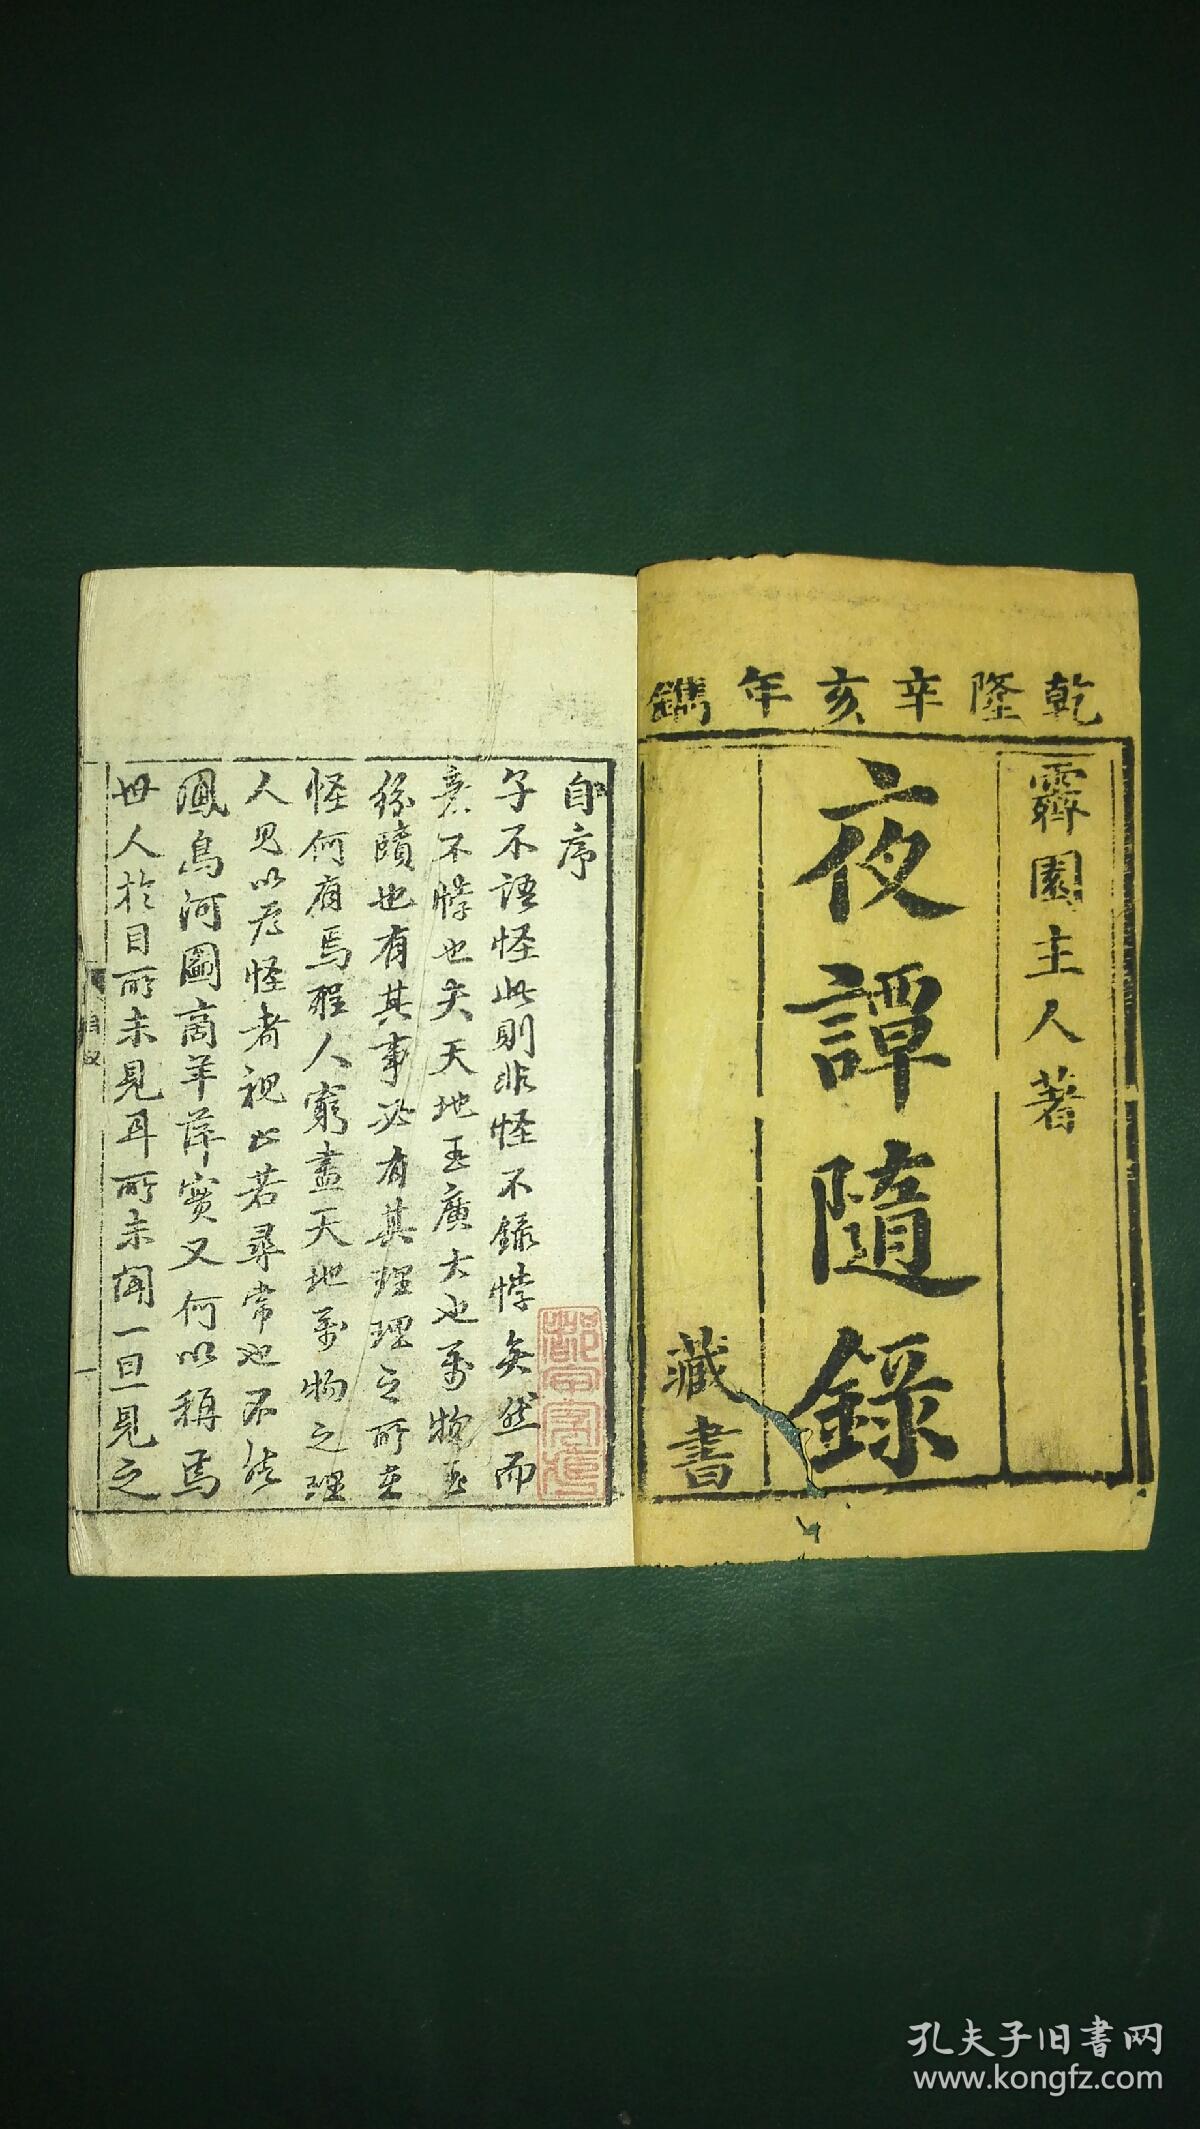 乾隆辛亥年鐫
霽園主人著
夜譚隨錄
藏書
自序
子不語怪此則非怪不錄悖矣然而
意不悖也夫天地至廣大也萬物至
紛賾也有其事必有其理理之所在
怪何有焉聖人窮盡天地萬物之理
人見以為怪者視之若尋常也不然
鳳鳥河圖商羊萍實又何以稱焉
世人於目所未見耳所未聞一旦見之
自敘
一
孔夫子旧书网
www.kongfz.com